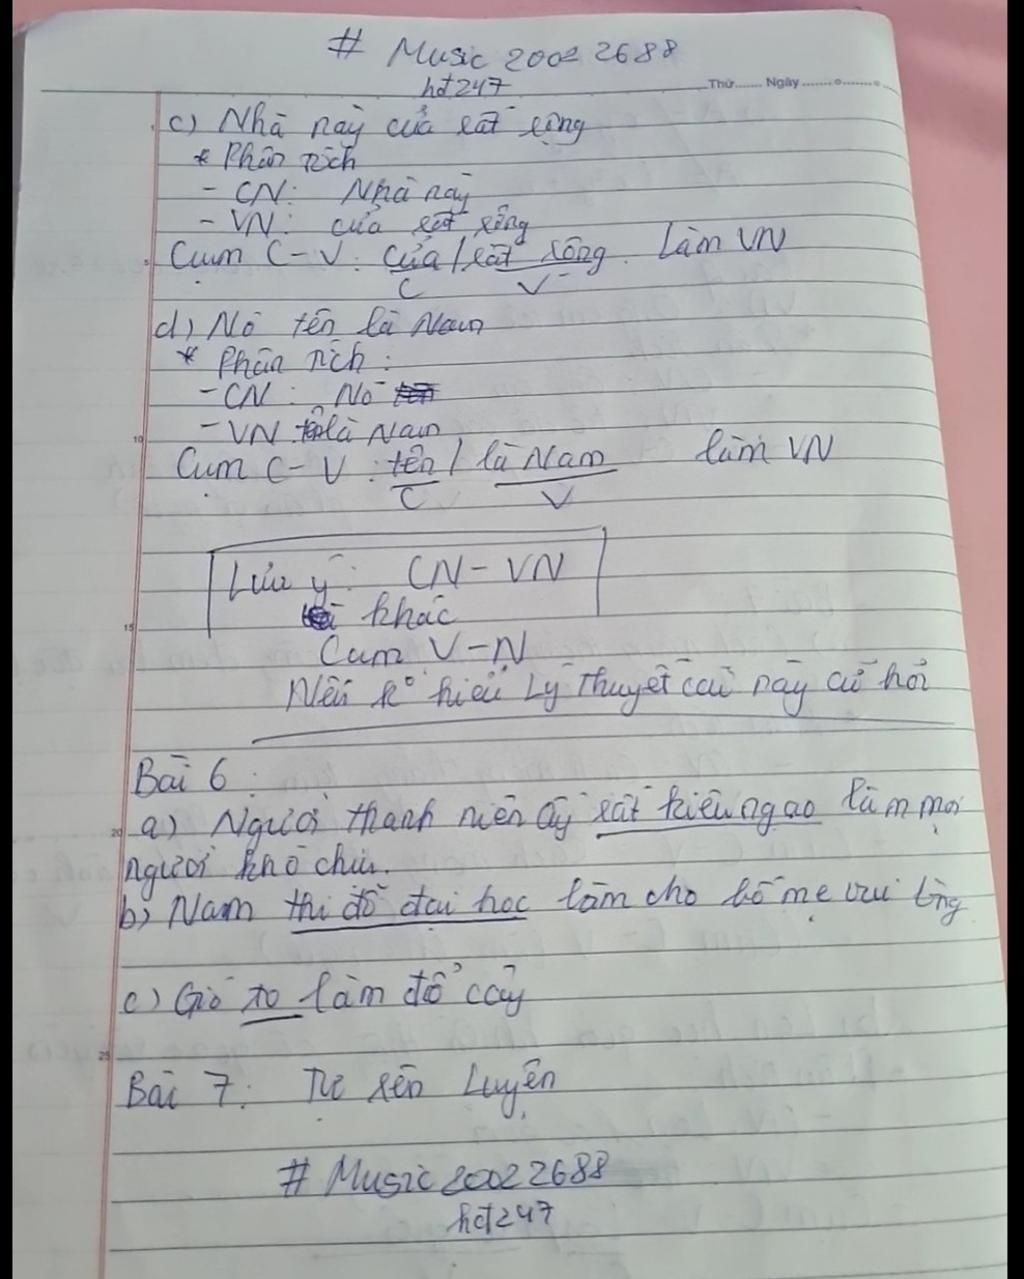 # Music 20022688
hđ247
Thứ....... Ngày.......
c) Nhà này cửa rất rộng
* Phân tích
- CN: Nhà này
- VN: cửa rất rộng
Cụm C-V: cửa / rất rộng làm VN
C V
d) Nó tên là Nam
* Phân tích:
- CN: Nó
- VN tên là Nam
10
Cụm C-V: tên / là Nam làm VN
C V
Lưu ý: CN-VN
khác
15
Cụm V-N
Nếu k° hiểu Lý Thuyết cái này cứ hỏi
Bài 6:
20
a) Người thanh niên ấy rất kiêu ngạo làm mọi
người khó chịu.
b) Nam thi đỗ đại học làm cho bố mẹ vui lòng
c) Gió to làm đổ cây
25
Bài 7: Tự rèn Luyện
# Music 20022688
hđ247